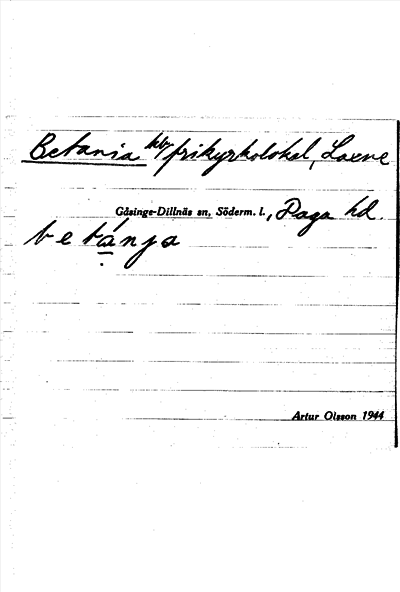 Betania kby frikyrkolokal, Laxne
Gåsinge-Dillnäs sn, Söderm. l., Daga hd.
betánja
Artur Olsson 1944